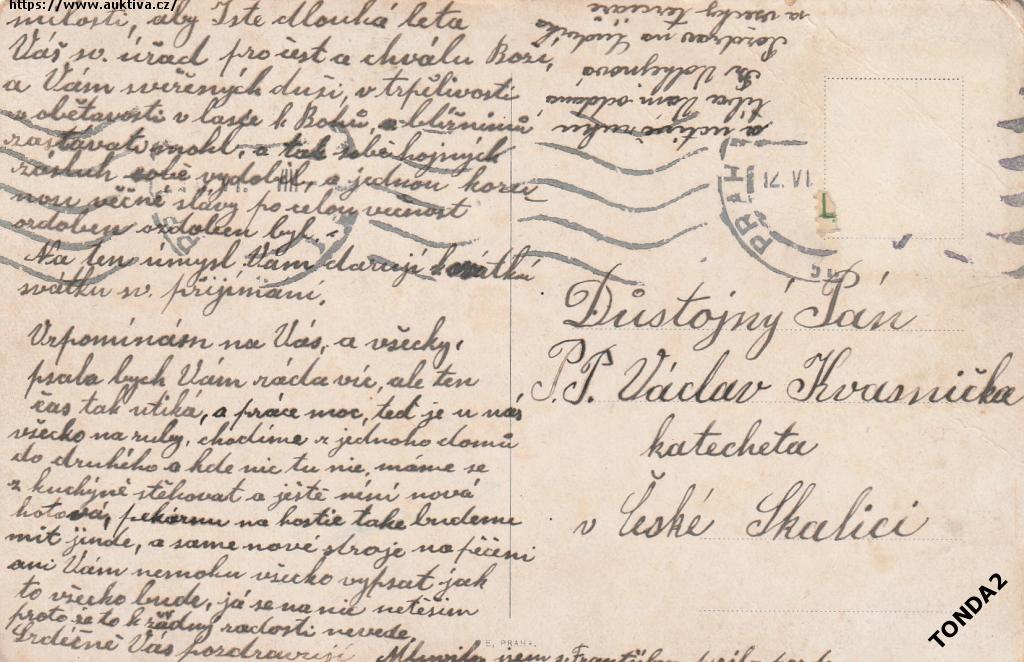 https://www.auktiva.cz/
milosti, aby Jste dlouhá léta
Váš sv. úřad pro čest a chválu Boží,
a Vám svěřených duší, v trpělivosti
a obětavosti v lásce k Bohu, a bližnímu
zastávati mohl, a tak sobě hojných
zásluh sobě vydobil, a jednou korunou
věčné slávy po celou věčnost
ozdoben ozdoben byl.-
Na ten úmysl Vám daruji
svátku sv. přijímání.
Vzpomínám na Vás, a všecky,
psala bych Vám ráda víc, ale ten
čas tak utíká, a práce moc, teď je u nás
všecko na ruby, chodíme z jednoho domů
do druhého a kde nic tu nic, máme se
z kuchyně stěhovat a ještě néní nová
hotová, pekárnu na hostie také budeme
mít jinde, a same nové stroje na péčení
ani Vám nemohu všecko vypsat jak
to všecko bude, já se na nic netěším
proto že to k žádný radosti nevede.
Srdéčně Vás pozdravuji
Mluvila jsem s
a uctivě ruku
líbá Vám oddaná
Pozdrav na
a všecky
PRAH
1.VI.21
L
Důstojný Pán
P.P. Václav Kvasnička
katecheta
v České Skalici
E, PRAHA.
TONDA2